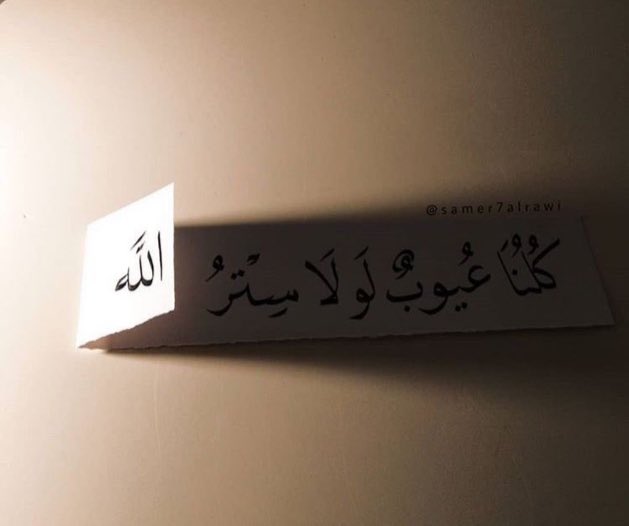 @samer7alrawi
كُلُنَا عُيوبٌ لَولَا سِترُ اللَّه